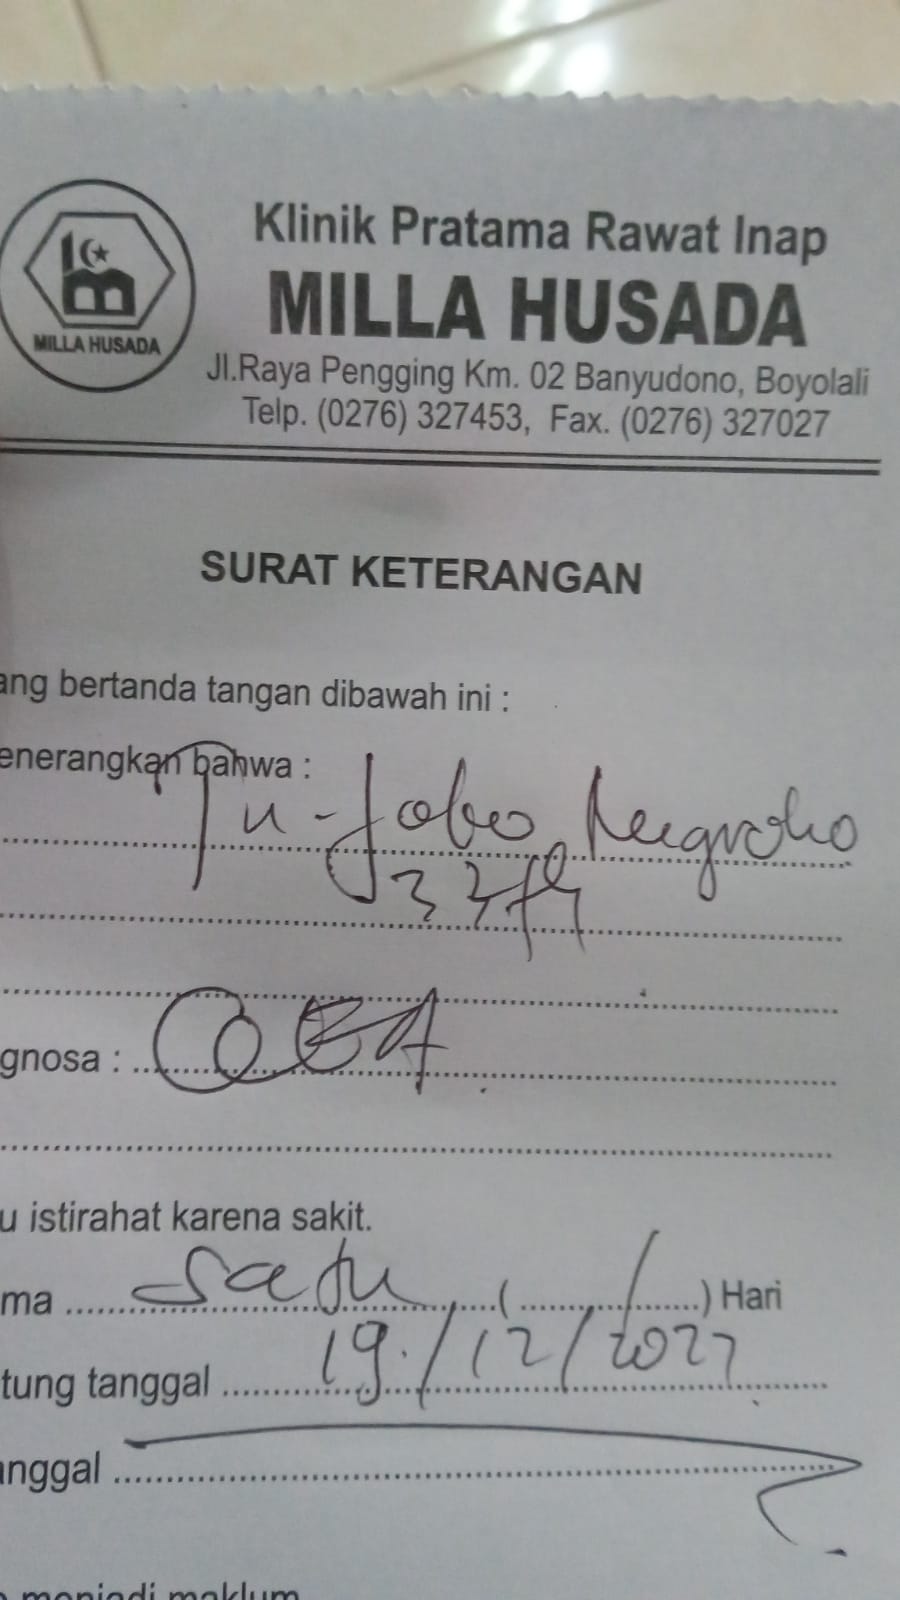 MILLA HUSADA
Klinik Pratama Rawat Inap
MILLA HUSADA
Jl.Raya Pengging Km. 02 Banyudono, Boyolali
Telp. (0276) 327453, Fax. (0276) 327027
SURAT KETERANGAN
ang bertanda tangan dibawah ini :
enerangkan bahwa :
Tn -
gnosa :
u istirahat karena sakit.
ma Satu ( / ) Hari
tung tanggal 19/12/2022
anggal
menjadi maklum